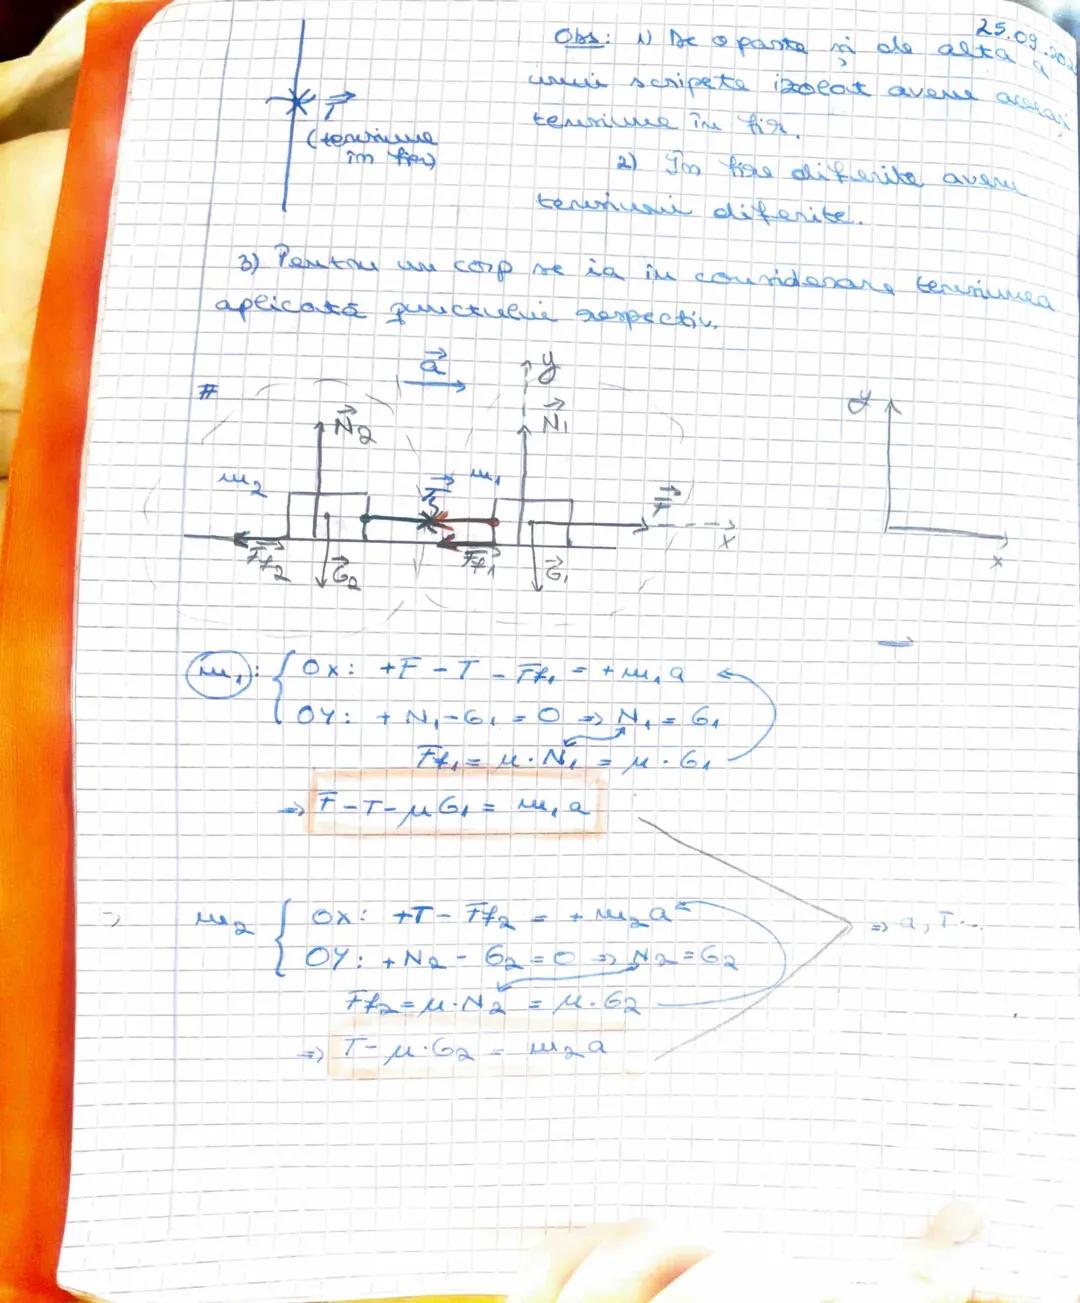 25.09.202
Obs: 1) De o parte și de alta a
unui scripete izolat avem aceeași
tensiune în fir.
T
(tensiune
în fir)
2) În fire diferite avem
tensiuni diferite.
3) Pentru un corp se ia în considerare tensiunea
aplicată punctului respectiv.
#
a
y
N2
N1
y
m2
T
m1
F
x
Ff2
G2
Ff1
G1
x
m1: { OX: +F - T - Ff1 = + m1 a
OY: + N1 - G1 = 0 => N1 = G1
Ff1 = μ · N1 = μ · G1
=> F - T - μG1 = m1 a
m2 { OX: +T - Ff2 = + m2 a
=> a, T...
OY: + N2 - G2 = 0 => N2 = G2
Ff2 = μ · N2 = μ · G2
=> T - μ · G2 = m2 a